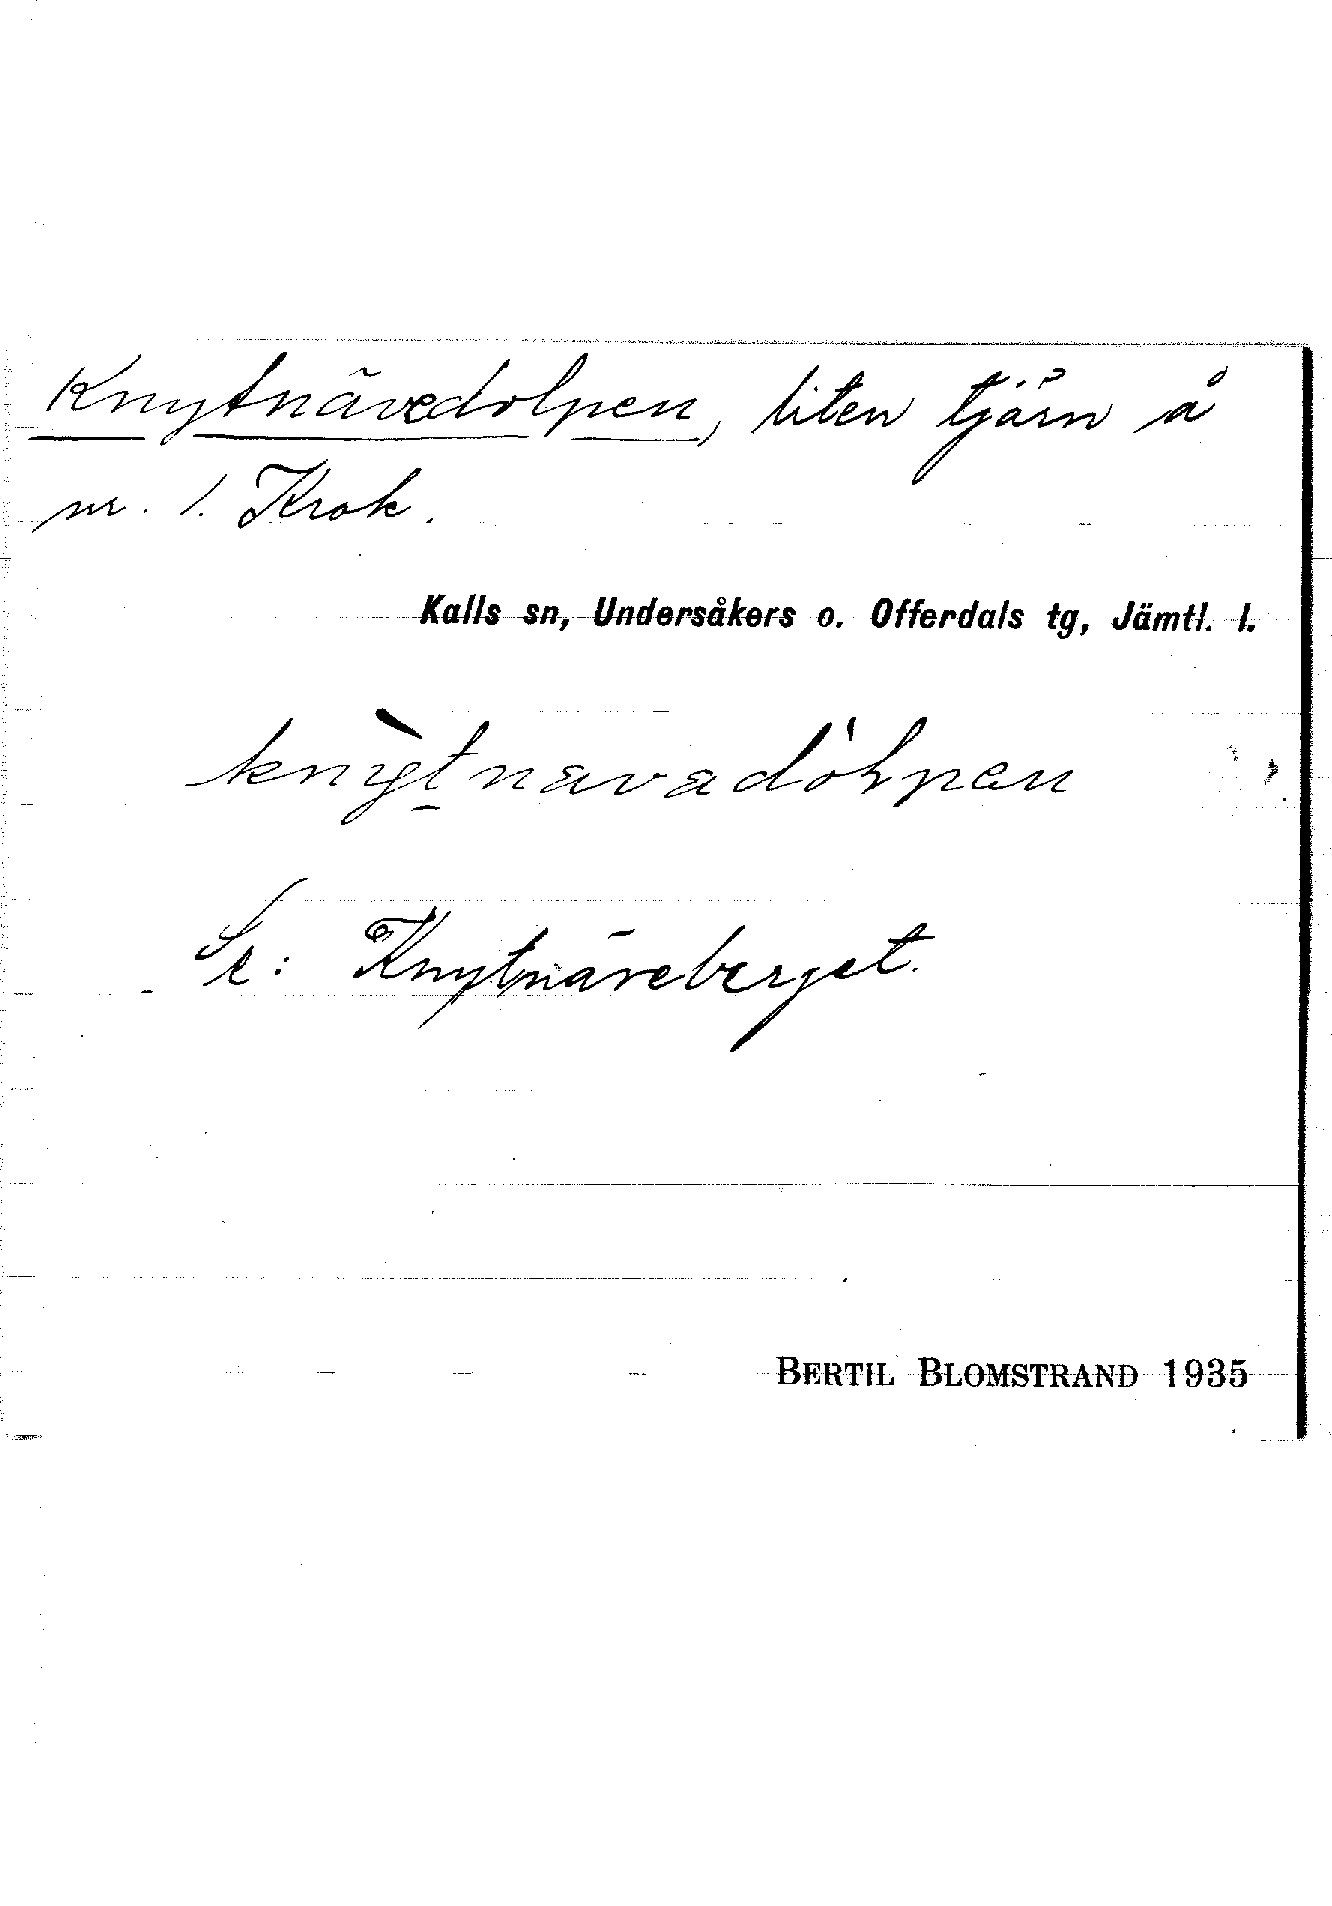 Knytnävedolpen, liten tjärn å
nr. 1. Krok.
Kalls sn, Undersåkers o. Offerdals tg, Jämtl. l.
Se: Knytnäveberget.
BERTIL BLOMSTRAND 1935